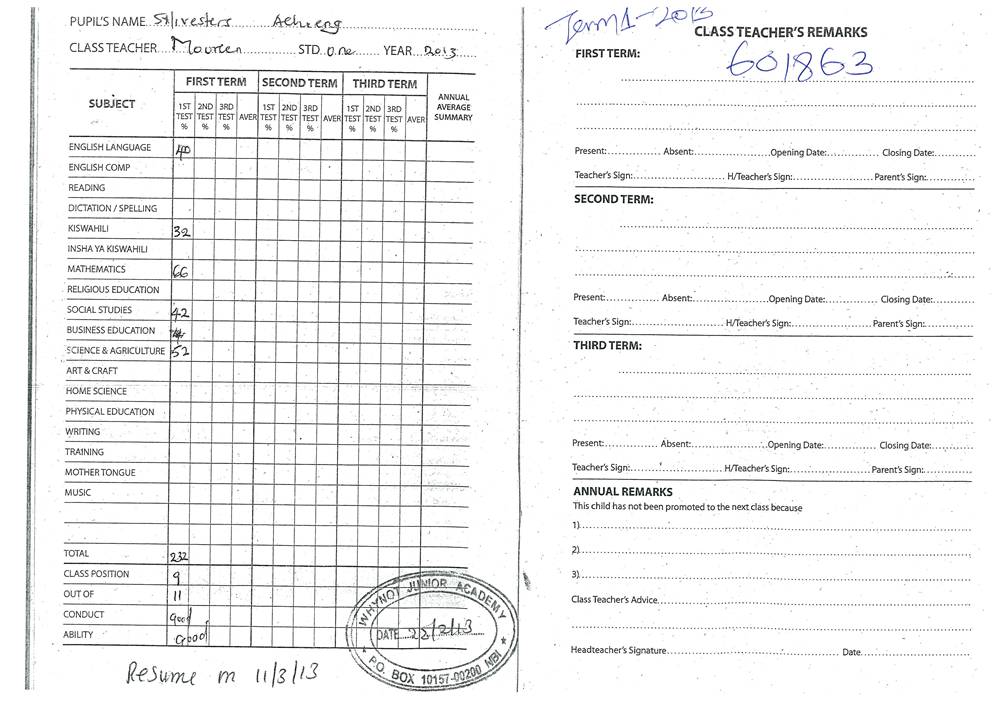 PUPIL'S NAME Achieng
CLASS TEACHER Maureen STD. One YEAR 2013
SUBJECT FIRST TERM SECOND TERM THIRD TERM ANNUAL AVERAGE SUMMARY
1ST TEST % 2ND TEST % 3RD TEST % AVER 1ST TEST % 2ND TEST % 3RD TEST % AVER 1ST TEST % 2ND TEST % 3RD TEST % AVER
ENGLISH LANGUAGE 40
ENGLISH COMP
READING
DICTATION / SPELLING
KISWAHILI 32
INSHA YA KISWAHILI
MATHEMATICS 66
RELIGIOUS EDUCATION
SOCIAL STUDIES 42
BUSINESS EDUCATION
SCIENCE & AGRICULTURE 52
ART & CRAFT
HOME SCIENCE
PHYSICAL EDUCATION
WRITING
TRAINING
MOTHER TONGUE
MUSIC
TOTAL 232
CLASS POSITION 9
OUT OF 11
CONDUCT good
ABILITY Good
WHYNOT JUNIOR ACADEMY
DATE 22/2/13
P.O. BOX 10157-00200 NBI
Resume on 11/3/13
Term 1 - 2013
CLASS TEACHER'S REMARKS
FIRST TERM: 601863
Present: Absent: Opening Date: Closing Date:
Teacher's Sign: H/Teacher's Sign: Parent's Sign:
SECOND TERM:
Present: Absent: Opening Date: Closing Date:
Teacher's Sign: H/Teacher's Sign: Parent's Sign:
THIRD TERM:
Present: Absent: Opening Date: Closing Date:
Teacher's Sign: H/Teacher's Sign: Parent's Sign:
ANNUAL REMARKS
This child has not been promoted to the next class because
1)
2)
3)
Class Teacher's Advice
Headteacher's Signature Date